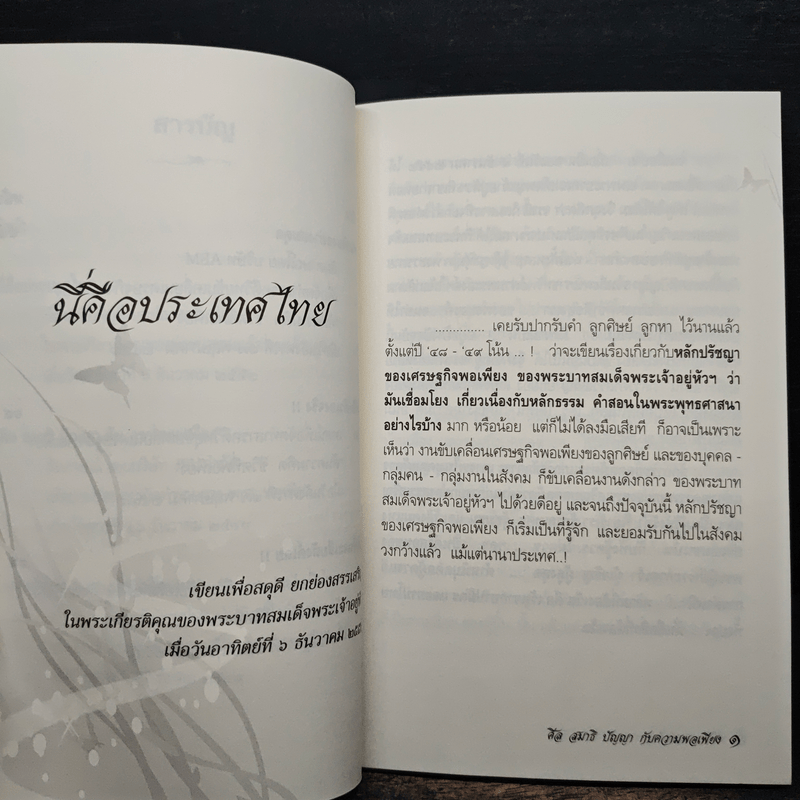 นี่คือประเทศไทย
เขียนเพื่อสดุดี ยกย่องสรรเสริญ
ในพระเกียรติคุณของพระบาทสมเด็จพระเจ้าอยู่
เมื่อวันอาทิตย์ที่ ๖ ธันวาคม
.............. เคยรับปากรับคำ ลูกศิษย์ ลูกหา ไว้นานแล้ว
ตั้งแต่ปี ‘๔๘ - ‘๔๙ โน้น ... ! ว่าจะเขียนเรื่องเกี่ยวกับหลักปรัชญา
ของเศรษฐกิจพอเพียง ของพระบาทสมเด็จพระเจ้าอยู่หัวฯ ว่า
มันเชื่อมโยง เกี่ยวเนื่องกับหลักธรรม คำสอนในพระพุทธศาสนา
อย่างไรบ้าง มาก หรือน้อย แต่ก็ไม่ได้ลงมือเสียที ก็อาจเป็นเพราะ
เห็นว่า งานขับเคลื่อนเศรษฐกิจพอเพียงของลูกศิษย์ และของบุคคล -
กลุ่มคน - กลุ่มงานในสังคม ก็ขับเคลื่อนงานดังกล่าว ของพระบาท
สมเด็จพระเจ้าอยู่หัวฯ ไปด้วยดีอยู่ และจนถึงปัจจุบันนี้ หลักปรัชญา
ของเศรษฐกิจพอเพียง ก็เริ่มเป็นที่รู้จัก และยอมรับกันไปในสังคม
วงกว้างแล้ว แม้แต่นานาประเทศ..!
ศีล สมาธิ ปัญญา กับความพอเพียง ๑